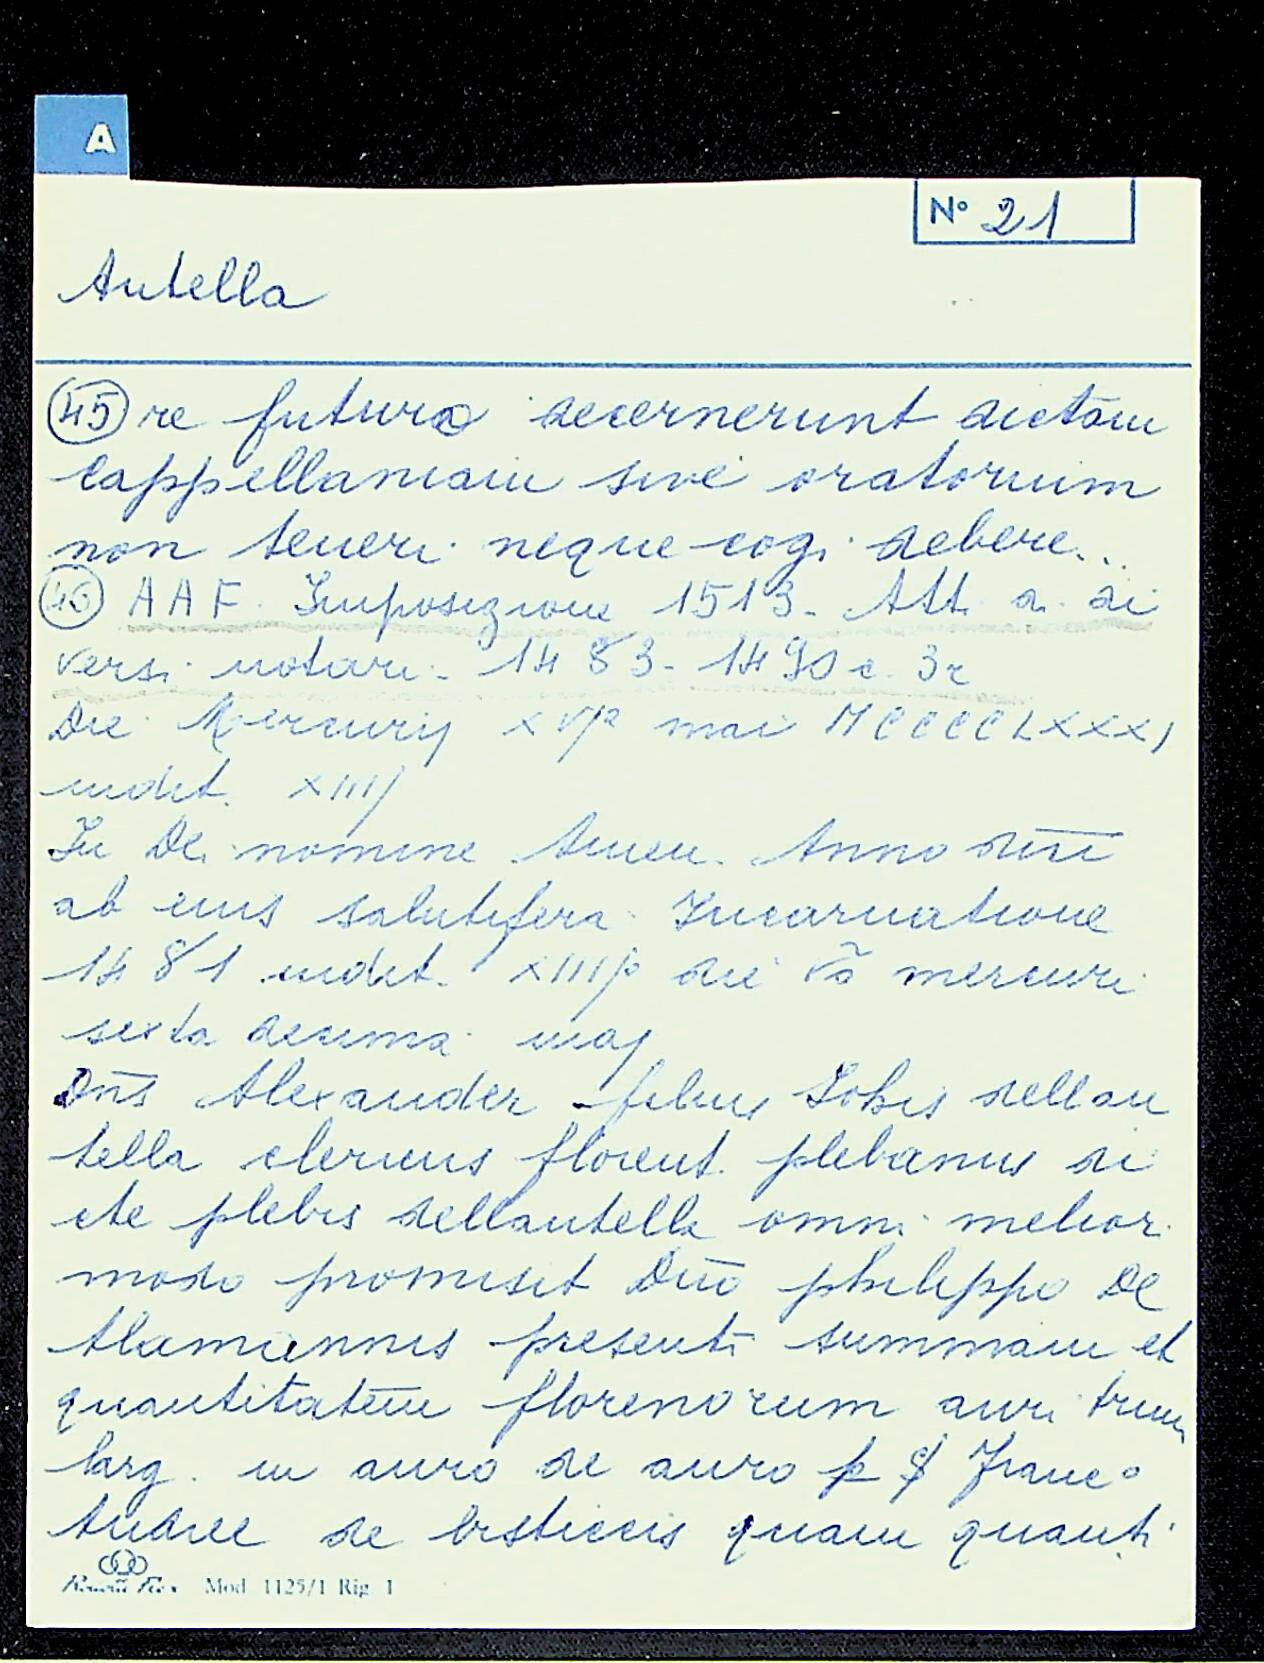 A
N° 21
Antella
45 re futuro decernerunt dictam
cappellaniam sive oratorium
non teneri neque cogi debere...
46 AAF. Imposizione 1513. Att. di di
versi notari. 1483-1490 c. 3r
Die Mercurij XVJa mai MCCCCLXXXJ
indit. XIIIJ
In Dei nomine Amen. Anno dni
ab eius salutifera Incarnatione
1481 indit. XIIIJa die vo mercurii
sexta decima maj
Dns Alexander filius Lohis dellan
tella clericus florent. plebanus di
cte plebis dellantella omni meliori
modo promisit Dno philippo De
Alamannis presenti summam et
quantitatem florenorum auri trium
larg. in auro de auro p Franco
Andree de bisticcis quam quanti
Mod. 1125/1 Rig. 1